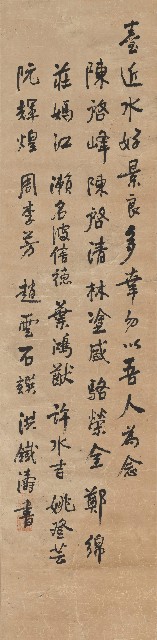 臺近水好景良多幸勿以吾人為念
陳啓峰陳啓清林塗威駱榮金鄭綿
莊嫣江瀨名波信德葉鴻猷許水吉姚登芸
阮輝煌周李芳趙雲石撰洪鐵濤書